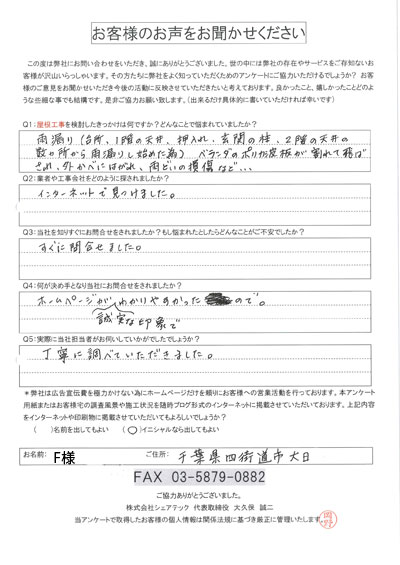 お客様のお声をお聞かせください
この度は弊社にお問い合わせをいただき、誠にありがとうございました。世の中には弊社の存在やサービスをご存知ないお
客様が沢山いらっしゃいます。その方たちに弊社をよく知っていただくためのアンケートにご協力いただけるでしょうか？ お客
様のご意見をお聞かせいただき今後の活動に反映させていただきたいと考えております。良かったこと、嬉しかったことどのよ
うな些細な事でも結構です。是非ご協力お願い致します。（出来るだけ具体的に書いていただければ幸いです）
Q1:屋根工事を検討したきっかけは何ですか？どんなことで悩まれていましたか？
雨漏り（台所、1階の天井、押入れ、玄関の柱、2階の天井の
数ヵ所から雨漏りし始めた為） ベランダのポリカ波板が割れて飛ば
され、外かべにはがれ、雨どいの損傷など...
Q2:業者や工事会社をどのように探されましたか？
インターネットで見つけました。
Q3:当社を知りすぐにお問合せをされましたか？もし悩まれたとしたらどんなことがご不安でしたか？
すぐに問合せました。
Q4:何が決め手となり当社にお問合せをされましたか？
ホームページがわかりやすかったので。
誠実な印象で
Q5:実際に当社担当者がお伺いしていかがでしたでしょうか？
丁寧に調べていただきました。
＊弊社は広告宣伝費を極力かけない為にホームページだけを頼りにお客様への営業活動を行っております。本アンケート
用紙またはお客様宅の調査風景や施工状況を随時ブログ形式のインターネットに掲載させていただいております。上記内容
をインターネットや印刷物に掲載させていただいてもよろしいでしょうか？
（ ）名前を出してもよい （○）イニシャルなら出してもよい
お名前： F様 ご住所： 千葉県四街道市大日
FAX 03-5879-0882
ご協力ありがとうございました。
株式会社シェアテック 代表取締役 大久保 誠二
当アンケートで取得したお客様の個人情報は関係法規に基づき厳正に管理いたします。